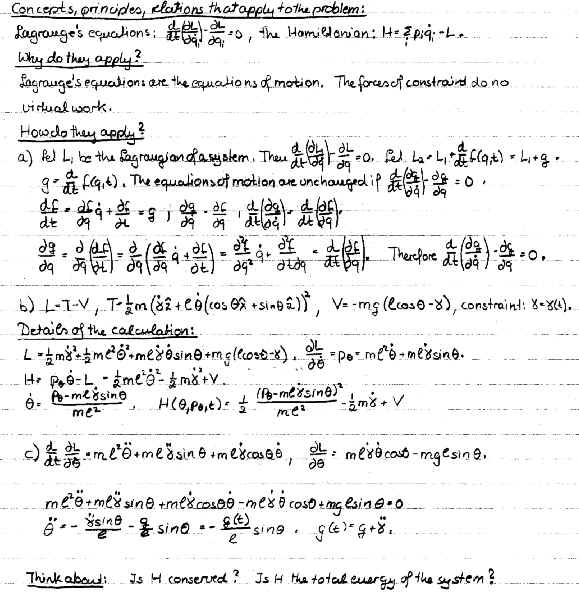 Concepts, principles, relations that apply to the problem:
Lagrange's equations: d/dt(∂L/∂q̇ᵢ) - ∂L/∂qᵢ = 0, the Hamiltonian: H = Σᵢ pᵢq̇ᵢ - L.
Why do they apply?
Lagrange's equations are the equations of motion. The forces of constraint do no
virtual work.
How do they apply?
a) Let L₁ be the Lagrangian of a system. Then d/dt(∂L/∂q̇) - ∂L/∂q = 0. Let L₂ = L₁ + d/dt f(q,t) = L₁ + g.
g = d/dt f(q,t). The equations of motion are unchanged if d/dt(∂g/∂q̇) - ∂g/∂q = 0.
df/dt = ∂f/∂q q̇ + ∂f/∂t = g ; ∂g/∂q̇ = ∂f/∂q , d/dt(∂g/∂q̇) = d/dt(∂f/∂q).
∂g/∂q = ∂/∂q(df/dt) = ∂/∂q(∂f/∂q q̇ + ∂f/∂t) = ∂²f/∂q² q̇ + ∂²f/∂t∂q = d/dt(∂f/∂q). Therefore d/dt(∂g/∂q̇) - ∂g/∂q = 0.
b) L = T - V, T = ½m(γ̇ẑ + ℓθ̇(cosθ x̂ + sinθ ẑ))², V = -mg(ℓcosθ - γ), constraint: γ = γ(t).
Details of the calculation:
L = ½mγ̇² + ½mℓ²θ̇² + mℓγ̇θ̇sinθ + mg(ℓcosθ - γ), ∂L/∂θ̇ = pθ = mℓ²θ̇ + mℓγ̇sinθ.
H = pθθ̇ - L = ½mℓ²θ̇² - ½mγ̇² + V.
θ̇ = (pθ - mℓγ̇sinθ)/mℓ², H(θ,pθ,t) = ½ (pθ - mℓγ̇sinθ)²/mℓ² - ½mγ̇ + V
c) d/dt ∂L/∂θ̇ = mℓ²θ̈ + mℓγ̈sinθ + mℓγ̇cosθθ̇, ∂L/∂θ = mℓγ̇θ̇cosθ - mgℓsinθ.
mℓ²θ̈ + mℓγ̈sinθ + mℓγ̇cosθθ̇ - mℓγ̇θ̇cosθ + mgℓsinθ = 0
θ̈ = - γ̈sinθ/ℓ - g/ℓ sinθ = - g(t)/ℓ sinθ. g(t) = g + γ̈.
Think about: Is H conserved? Is H the total energy of the system?